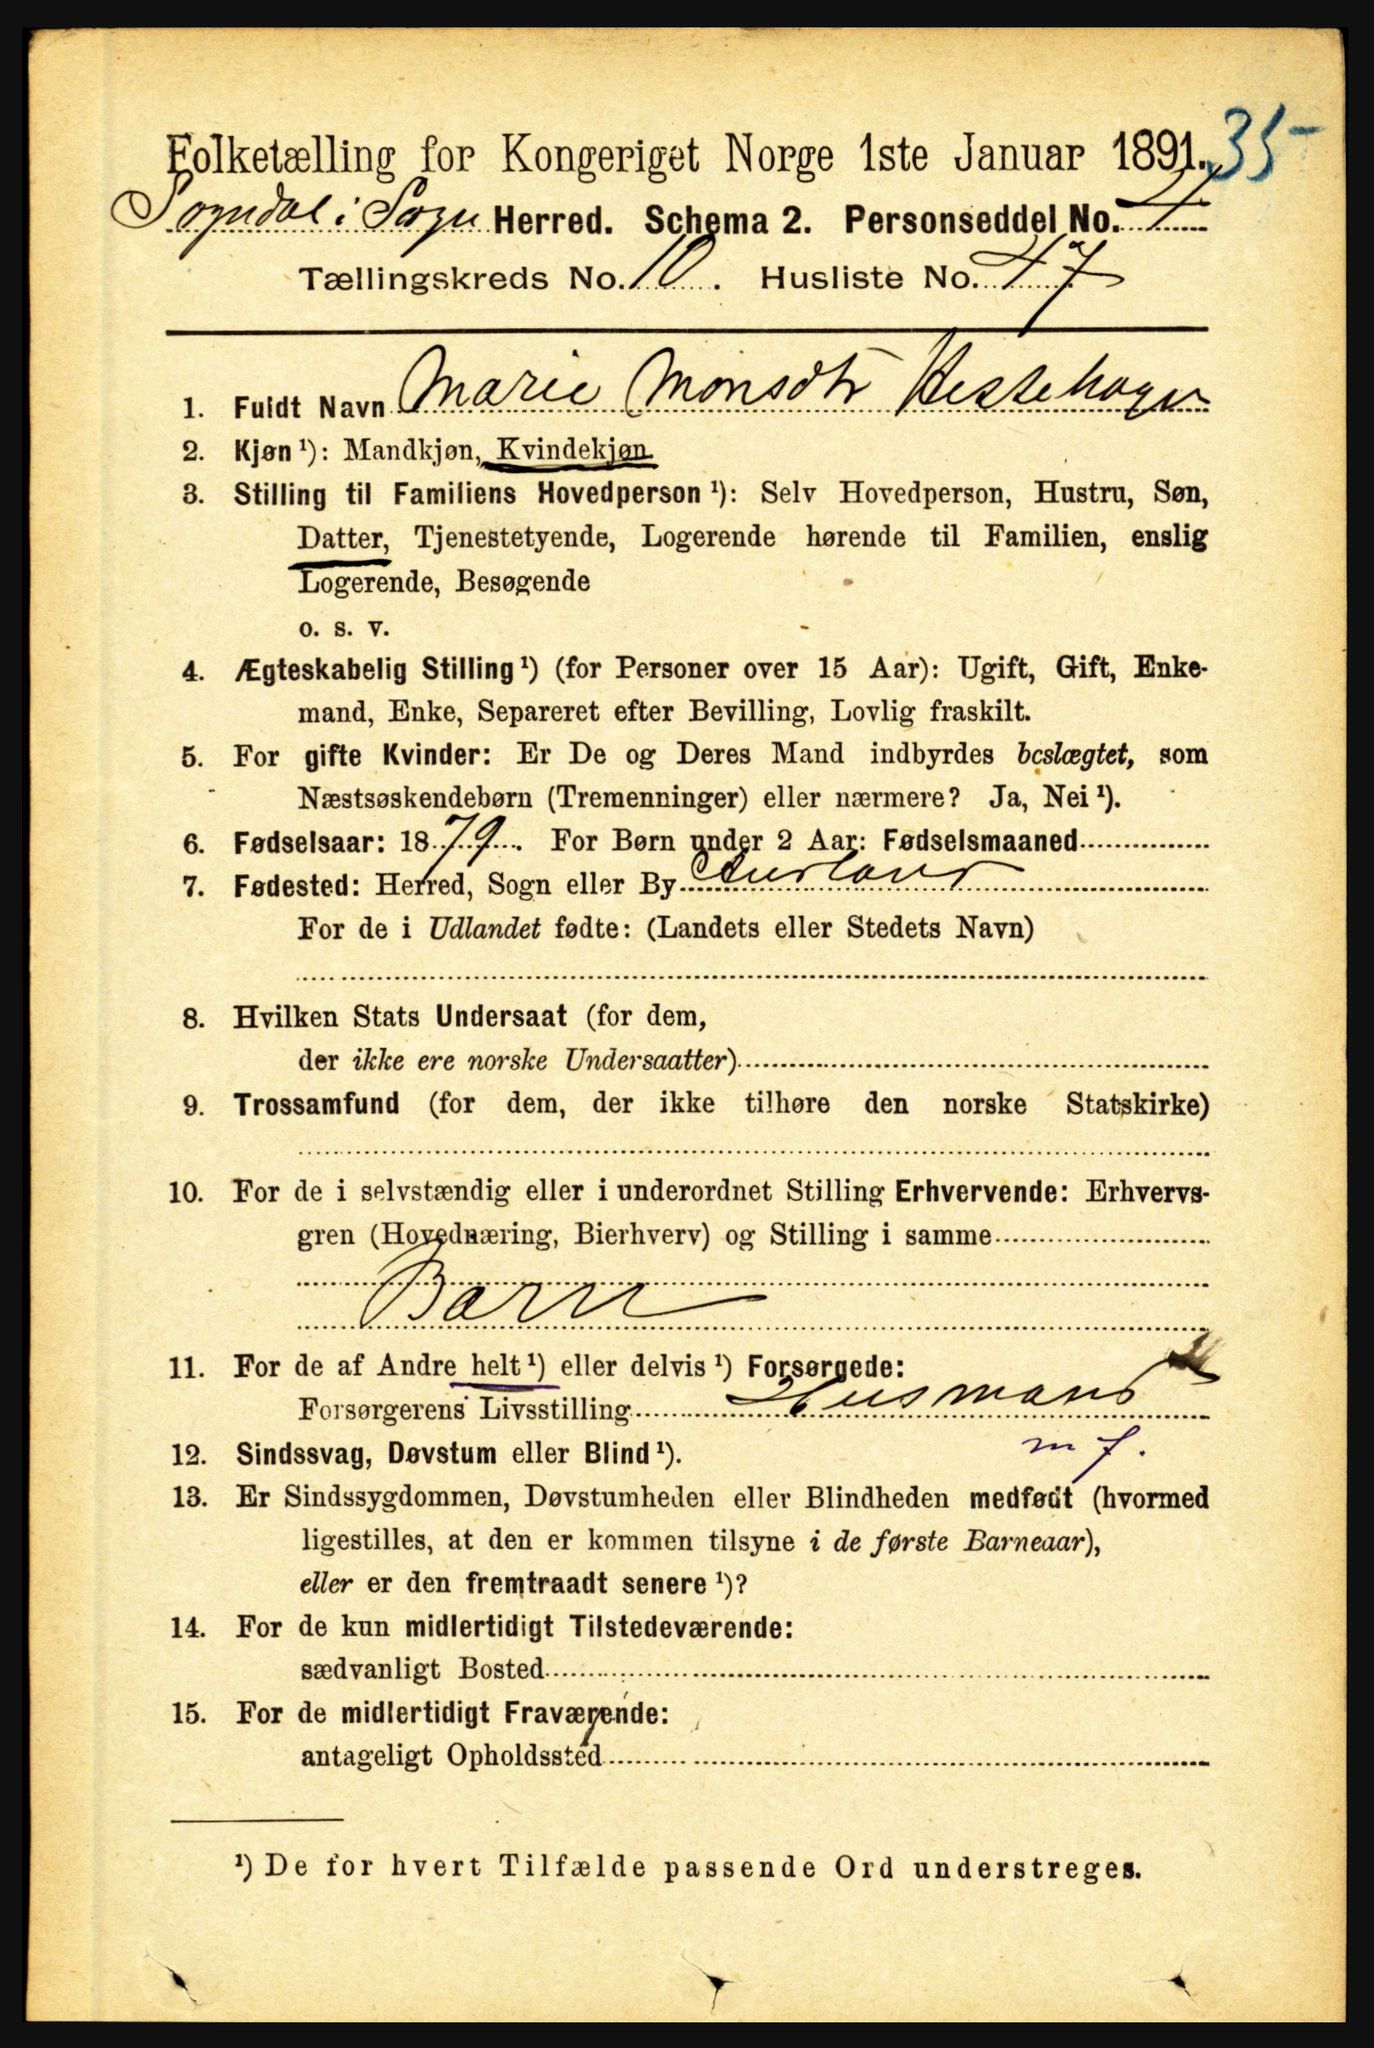 35
Folketælling for Kongeriget Norge 1ste Januar 1891.
Sogndal i Sogn Herred. Schema 2. Personseddel No. 4
Tællingskreds No. 10. Husliste No. 47
1. Fuldt Navn Marie Monsdtr Hestehagen
2. Kjøn ¹): Mandkjøn, Kvindekjøn.
3. Stilling til Familiens Hovedperson ¹): Selv Hovedperson, Hustru, Søn,
Datter, Tjenestetyende, Logerende hørende til Familien, enslig
Logerende, Besøgende
o. s. v.
4. Ægteskabelig Stilling ¹) (for Personer over 15 Aar): Ugift, Gift, Enke-
mand, Enke, Separeret efter Bevilling, Lovlig fraskilt.
5. For gifte Kvinder: Er De og Deres Mand indbyrdes beslægtet, som
Næstsøskendebørn (Tremenninger) eller nærmere? Ja, Nei ¹).
6. Fødselsaar: 1879. For Børn under 2 Aar: Fødselsmaaned
7. Fødested: Herred, Sogn eller By Aurland
For de i Udlandet fødte: (Landets eller Stedets Navn)
8. Hvilken Stats Undersaat (for dem,
der ikke ere norske Undersaatter)
9. Trossamfund (for dem, der ikke tilhøre den norske Statskirke)
10. For de i selvstændig eller i underordnet Stilling Erhvervende: Erhvervs-
gren (Hovednæring, Bierhverv) og Stilling i samme
Barn
11. For de af Andre helt ¹) eller delvis ¹) Forsørgede:
Forsørgerens Livsstilling Husmand
m f.
12. Sindssvag, Døvstum eller Blind ¹).
13. Er Sindssygdommen, Døvstumheden eller Blindheden medfødt (hvormed
ligestilles, at den er kommen tilsyne i de første Barneaar),
eller er den fremtraadt senere ¹)?
14. For de kun midlertidigt Tilstedeværende:
sædvanligt Bosted
15. For de midlertidigt Fraværende:
antageligt Opholdssted
¹) De for hvert Tilfælde passende Ord understreges.